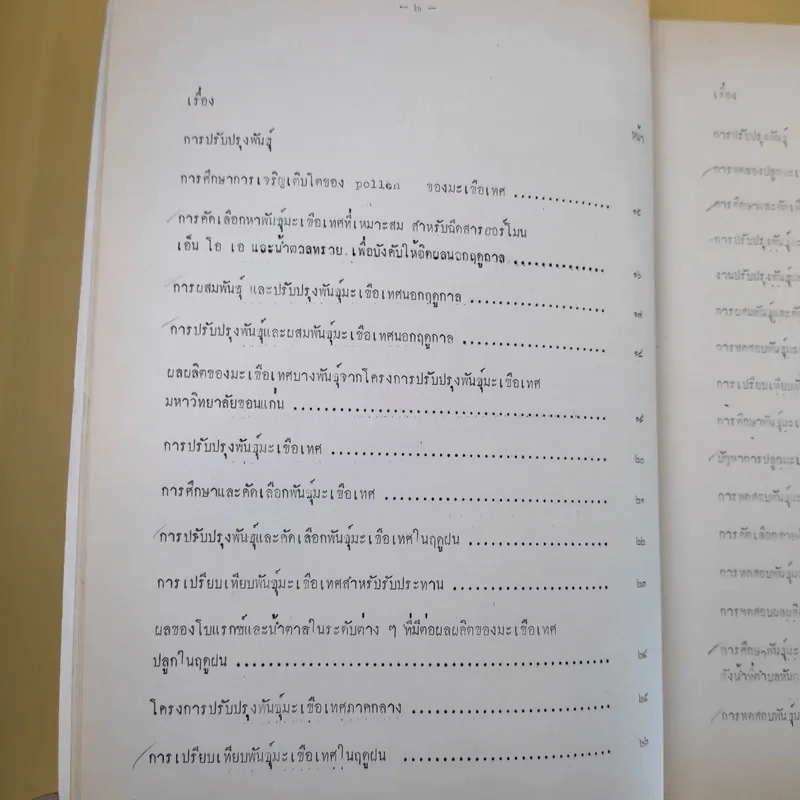 - ๒ -
เรื่อง
หน้า
การปรับปรุงพันธุ์
การศึกษาการเจริญเติบโตของ pollen ของมะเขือเทศ .............. ๑๕
การคัดเลือกหาพันธุ์มะเขือเทศที่เหมาะสม สำหรับฉีดสารฮอร์โมน
เอ็น โอ เอ และน้ำตาลทราย เพื่อบังคับให้ติดผลนอกฤดูกาล .............. ๑๖
การผสมพันธุ์ และปรับปรุงพันธุ์มะเขือเทศนอกฤดูกาล .................... ๑๗
การปรับปรุงพันธุ์และผสมพันธุ์มะเขือเทศนอกฤดูกาล .................... ๑๘
ผลผลิตของมะเขือเทศบางพันธุ์จากโครงการปรับปรุงพันธุ์มะเขือเทศ
มหาวิทยาลัยขอนแก่น ........................................ ๑๙
การปรับปรุงพันธุ์มะเขือเทศ .................................... ๒๐
การศึกษาและคัดเลือกพันธุ์มะเขือเทศ .............................. ๒๑
การปรับปรุงพันธุ์และคัดเลือกพันธุ์มะเขือเทศในฤดูฝน .................... ๒๒
การเปรียบเทียบพันธุ์มะเขือเทศสำหรับรับประทาน ...................... ๒๓
ผลของโบแรกซ์และน้ำตาลในระดับต่าง ๆ ที่มีต่อผลผลิตของมะเขือเทศ
ปลูกในฤดูฝน .............................................. ๒๔
โครงการปรับปรุงพันธุ์มะเขือเทศภาคกลาง .......................... ๒๕
การเปรียบเทียบพันธุ์มะเขือเทศในฤดูฝน .......................... ๒๖
เรื่อง
การปรับปรุงพันธุ์
การทดลองปลูกมะเ
การศึกษาและคัดเลื
การปรับปรุงพันธุ์
งานปรับปรุงพันธุ์
การผสมพันธุ์และคั
การทดสอบพันธุ์มะ
การเปรียบเทียบพั
การศึกษาพันธุ์มะเ
ปัญหาการปลูกมะเ
การทดสอบพันธุ์มะ
การทดสอบพันธุ์
การศึกษาพันธุ์มะ
การทดสอบพันธุ์ม